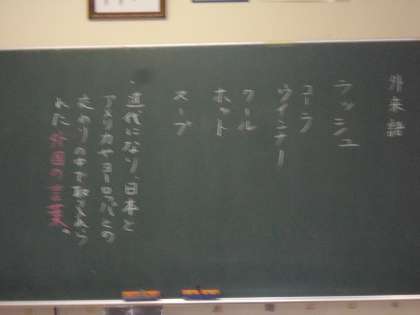 外来語
ラッシュ
コーラ
ウインナー
クール
ホット
スープ
・近代になり、日本と
アメリカやヨーロッパとの
交わりの中で取り入れら
れた外国の言葉。